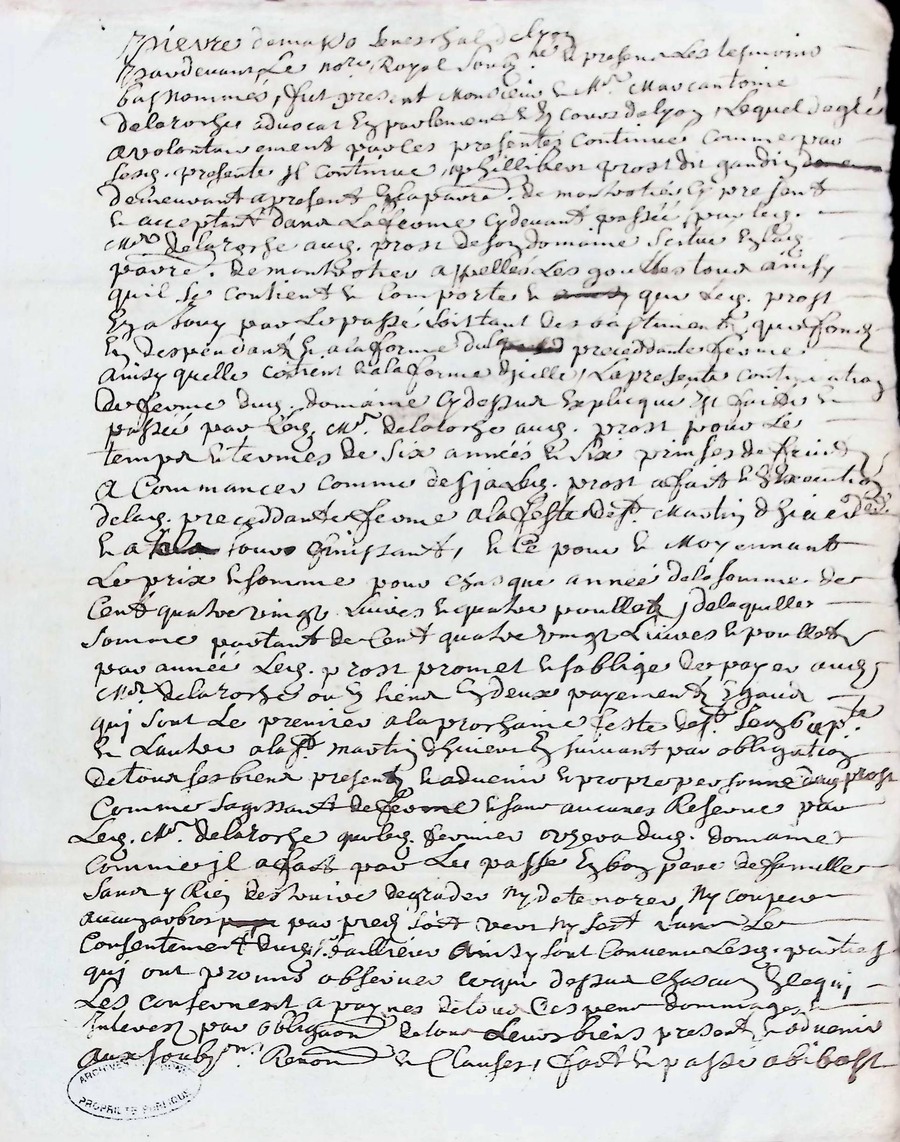 Pierre demasso seneschal delyon
Pardevant Le nore Royal soubne & presens Les tesmoins
bas nommés, fut present Monsieur Me Mr Marcantoine
delaroche advocat en parlement & en cours de lyon, Lequel de gré
a volontairement par ces presentes Continue comme par
sesq. presentes Il Continue, philliber prost dit gaudin
demeurant a present en la parre. de montrotier Cy present
& acceptant dans La ferme cy devant passéé par leq.
Mr delaroche auq. prost de son domaine scitue en laq.
parre. de montrotier appelles Les gouttes tout ainsy
quil se contient & comporte & que Leq. prost
En a Jouy par Le passé soit tant des bastiments que fonds
En despendants & a la forme precedante ferme
ainsy quelle contient & a la forme dicelle, La presente continuation
de ferme duq. domaine Cy dessus Explicque Est faitte &
passéé par Leq. Mr. delaroche auq. prost pour Le
temps & termes de six annéés & six prinses de fruicts
A Commancer comme desja Leq. prost a fait & Execution
delaq. precedante ferme a la feste de st. Martin dhiver
& a tels jours finissant, & Ce pour & Moyennant
Le prix & somme pour chasque annéé de la somme de
Cent quatre vingt Livres & quatre poullets, delaquelle
somme partant de Cent quatre vingt Livres & poullets
par annéé Leq. prost promet & soblige de payer auq.
Mr delaroche ou en siens En deux payements Egaux
quj sont Le premier a la prochaine feste de st. Jean bapte.
& Lautre a la st. martin dhiver En suivant par obligation
de tous ses biens presents & advenir & propre personne duq prost
Comme sagissant de ferme & sans aucunes Reserve par
Leq. Mr. delaroche que leq. fermier usera duq. domaine
comme il a fait par Le passe En bon pere de famille
sans y Rien destruire degrader Ny deteriorer, Ny couper
aucun arbres par pied soit vert Ny sect sans Le
Consentement duq. sr. bailleur Ainsy sont Convenu Lesq. parties
quj ont promis observer ce que dessus chascun En ce quj
Les concernent a paynes de tous despens dommages &
Interest par obligaon de tous Leurs biens presents & advenir
Aux soubson. Renon & Clauses, fait & passé a bibost
ARCHIVES
PROPRIETE PUBLIQUE